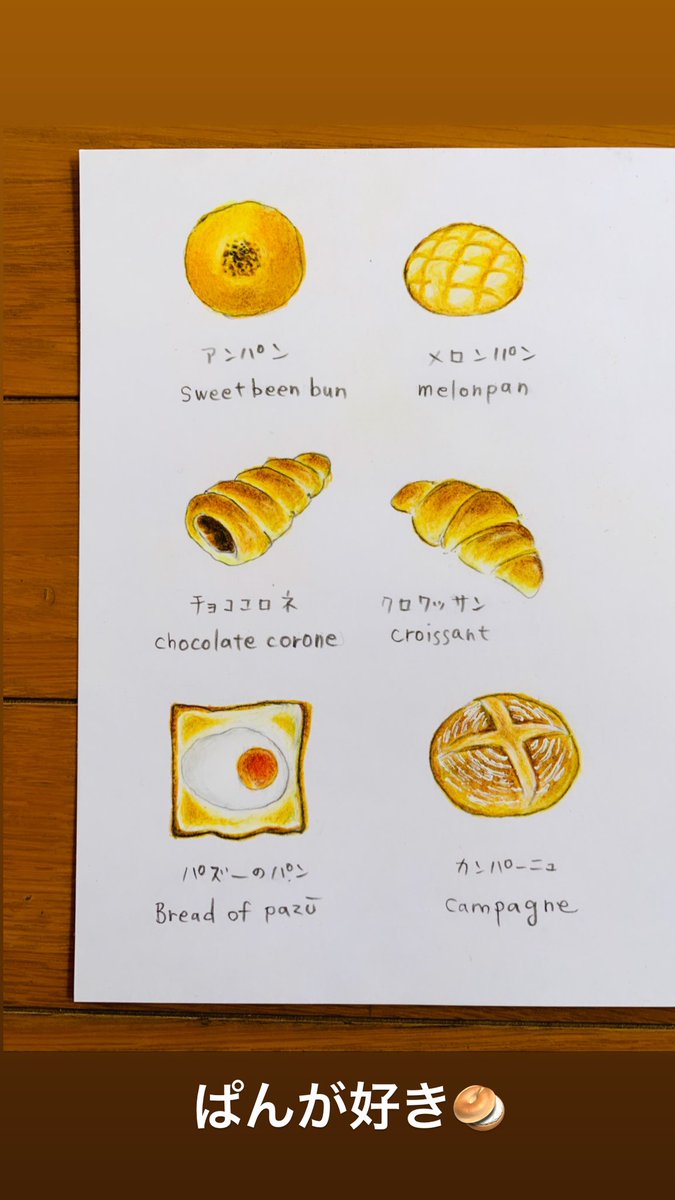 アンパン
sweet been bun
メロンパン
melonpan
チョココロネ
chocolate corone
クロワッサン
croissant
パズーのパン
Bread of pazū
カンパーニュ
campagne
ぱんが好き🥯